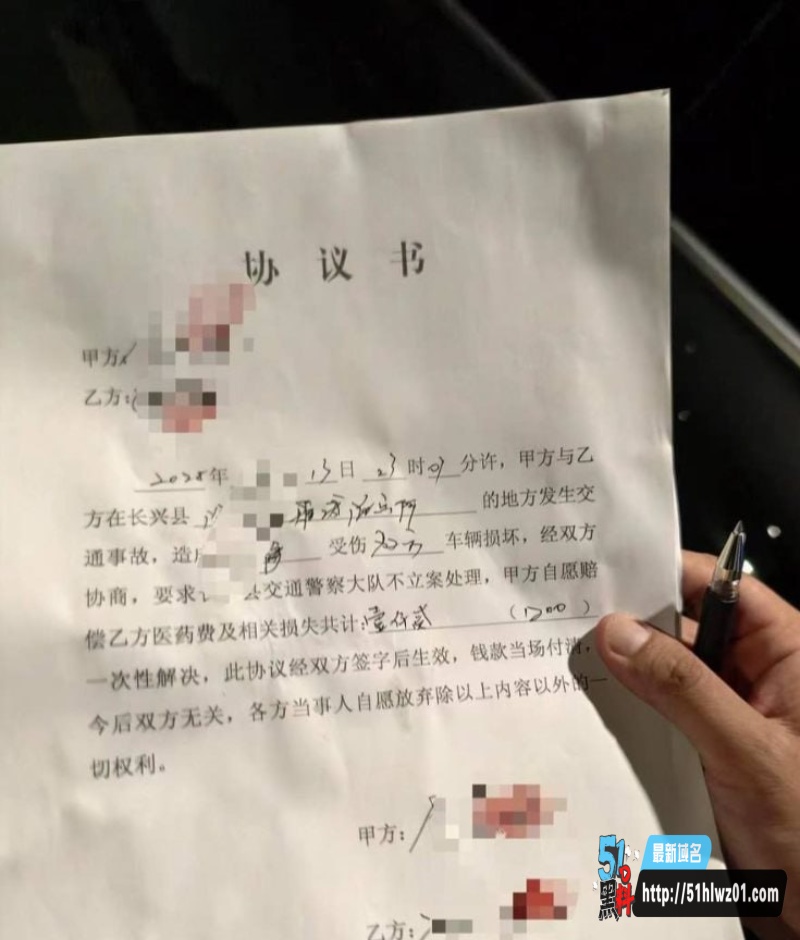 协 议 书
甲方:
乙方:
2025年 13日 23时07分许，甲方与乙
方在长兴县 的地方发生交
通事故，造 受伤 双方 车辆损坏，经双方
协商，要求 县交通警察大队不立案处理，甲方自愿赔
偿乙方医药费及相关损失共计:壹仟贰 (1200)
一次性解决，此协议经双方签字后生效，钱款当场付清，
今后双方无关，各方当事人自愿放弃除以上内容以外的一
切权利。
甲方:
乙方:
51黑料
最新域名
http://51hlwz01.com